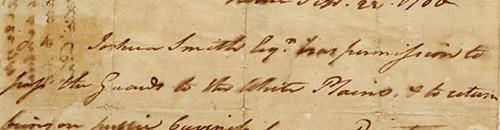 Sepr. 22. 1780
Joshua Smith Esqr. has permission to
pass the Guards to the White Plains, & to return
being on public business